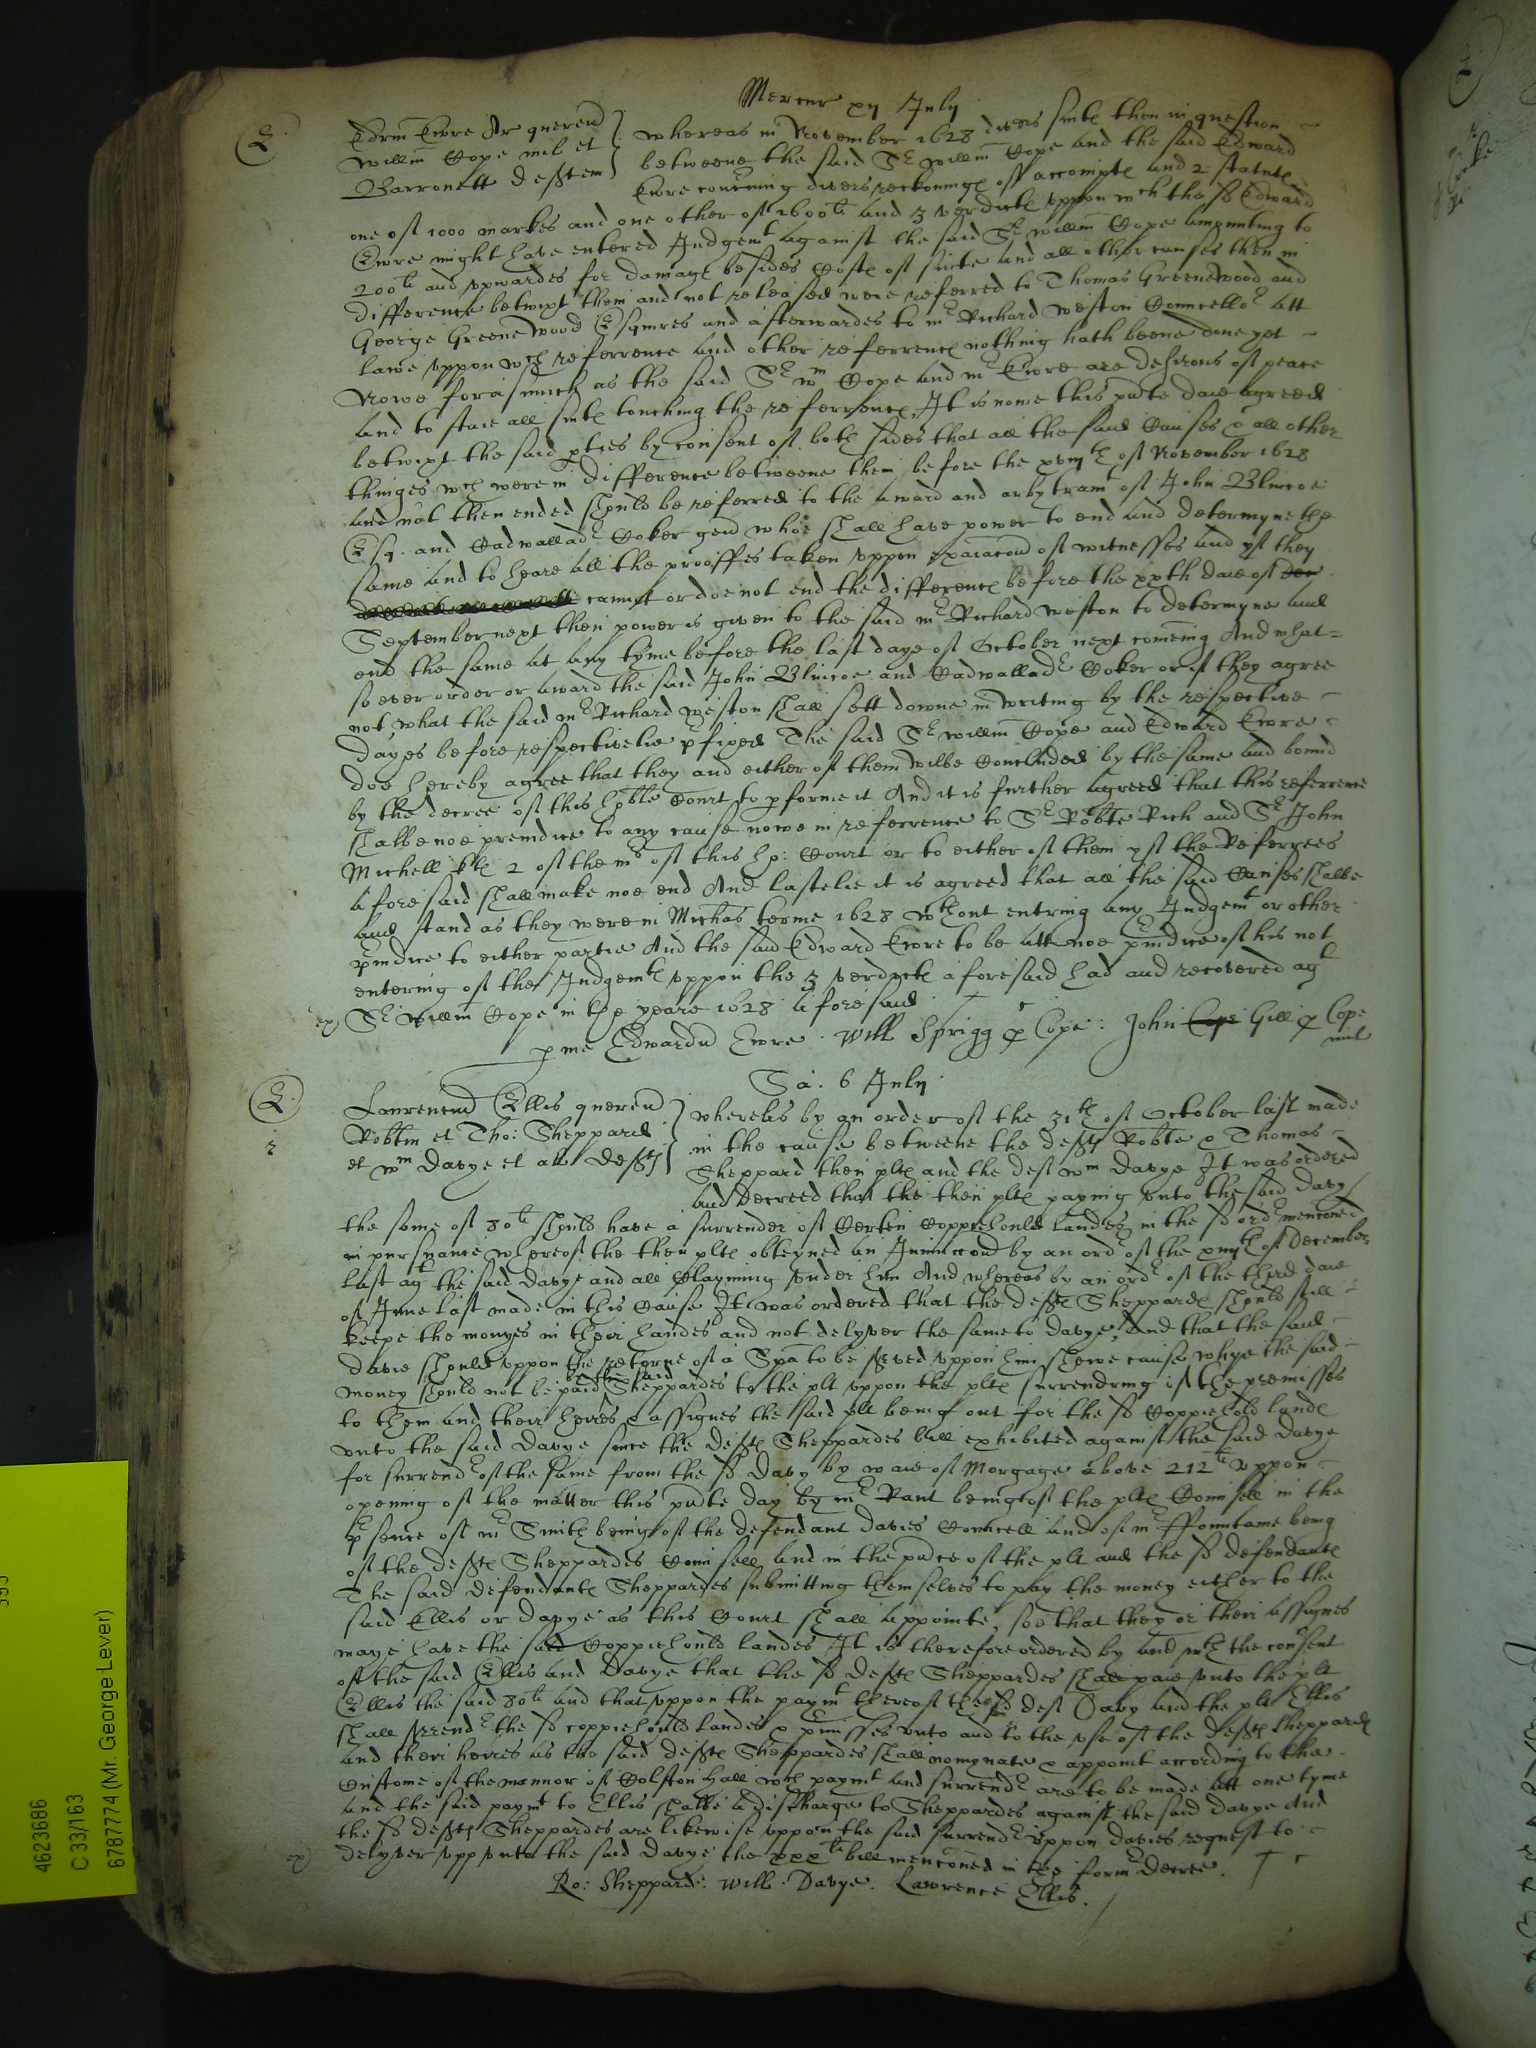 Mercur xij July
E
Edrum Ewre Ar querend
Willm Cope mil et
Barronett defftem
whereas in November 1628 divers suits then in question
betweene the said Sr Willm Cope and the said Edward
Ewre concerning divers reckonings of accompts and 2 statuts
one of 1000 markes and one other of 1600li and 3 verdicts uppon wch the sd Edward
Ewre might have entered Judgemt against the said Sr Willm Cope amounting to
200li and upwardes for damage besides Costs of suite and all other causes then in
difference betwixt them and not released were referred to Thomas Greenewood and
George Greenewood Esquires and afterwardes to mr Richard Weston Councellor att
lawe uppon wch referrence and other referrences nothing hath beene done yet
Nowe forasmuch as the said Sr Wm Cope and mr Ewre are desirous of peace
and to staie all suits touching the referrences, It is nowe this pnte daie agreed
betwixt the said pties by consent of both sides that all the said Causes & all other
thinges wch were in difference betweene them before the xviijth of November 1628
and not then ended should be referred to the award and arbytramt of John Blincoe
Esq. and Cadwalladr Coker gen whoe shall have power to end and determyne the
same and to heare all the prooffes taken uppon exaiacon of witnesses and yf they
cannot or doe not end the differences before the xxth daie of
September next then power is given to the said mr Richard Weston to determyne and
end the same at any tyme before the last daye of October next comeing And what=
soever order or award the said John Blincoe and Cadwalladr Coker or if they agree
not, what the said mr Richard Weston shall sett downe in writing by the respective
dayes before respectivelie pfixed The said Sr Willm Cope and Edward Ewre
doe hereby agree that they and either of them wilbe Concluded by the same and bound
by the decree of this hoble Court to pforme it And it is further agreed that this referrence
shalbe noe preiudice to any cause nowe in referrence to Sr Robte Rich and Sr John
Michell kts 2 of the mrs of this ho: Court or to either of them yf the Referrees
aforesaid shall make noe end And lastelie it is agreed that all the said Causes shalbe
and stand as they were in Michas terme 1628 wthout entring any Judgemt or other
piudice to either partie And the said Edward Ewre to be att noe piudice of his not
entering of the Judgemts uppon the 3 verdicts aforesaid had and recovered agt
ex) Sr Willm Cope in the yeare 1628 aforesaid
p me Edwardu Ewre . Will Sprigg p Cope : John Cope Gill p Cope
mil
Sa. 6 July
E
2
Laurencium Ellis querend
Robtm et Tho: Sheppard
et Wm Davye et al defftes
whereas by an order of the 31th of October last made
in the cause betweene the deffts Robte & Thomas
Sheppard then plts and the deft Wm Davye It was ordered
and decreed that the then plts paying unto the said Davy
the some of 80li should have a surrender of Certen Coppiehould landes in the sd ordr menconed
in pursuance whereof the then plts obteyned an Iniunccon by an ordr of the xiiijth of December
last agt the said Davye and all Clayming under him And whereas by an ordr of the third daie
of June last made in this Cause It was ordered that the deffts Sheppards should still
keepe the monyes in their handes and not delyver the same to Davye, And that the said
Davie should uppon the retorne of a Spa to be served uppon him shewe cause whye the said
by the said
money should not be paid Sheppardes to the plt uppon the plts surrendring of the premisses
to them and their heires & assignes the said plt being out for the sd Coppiehold lands
unto the said Davye since the deffts Sheppardes bill exhibited against the said Davye
for surrendr of the same from the sd Davy by waie of Morgage above 212li uppon
opening of the matter this pnte day by mr Rant being of the plts Counsell in the
psence of mr Smith being of the defendant Davies Councell and of mr ffountaine being
of the deffts Sheppardes Counsell and in the pnce of the plt and the sd defendants
The said defendants Sheppardes submitting themselves to pay the money either to the
said Ellis or Davye as this Court shall appointe, soe that they or their assignes
maye have the said Coppiehould landes It is therefore ordered by and wth the consent
of the said Ellis and Davye that the sd deffts Sheppardes shall paie unto the plt
Ellis the said 80li and that uppon the paymt thereof the sd deft Davy and the plt Ellis
shall srrendr the sd coppiehould landes & pmisses unto and to the use of the deffts Sheppards
and their heires as the said deffts Sheppardes shall nomynate & appoint according to the
Custome of the mannor of Colston Hall wch paymt and surrendr are to be made att one tyme
and the said paymt to Ellis shalbe a discharge to Sheppardes against the said Davye And
the sd deffts Sheppardes are likewise uppon the said surrendr uppon Davies request to
ex) delyver upp unto the said Davye the xxxli bill menconed in the formr decree.
Ro: Sheppard: Will. Davye. Lawrence Ellis.
4623686
C 33/163
6787774 (Mr. George Lever)